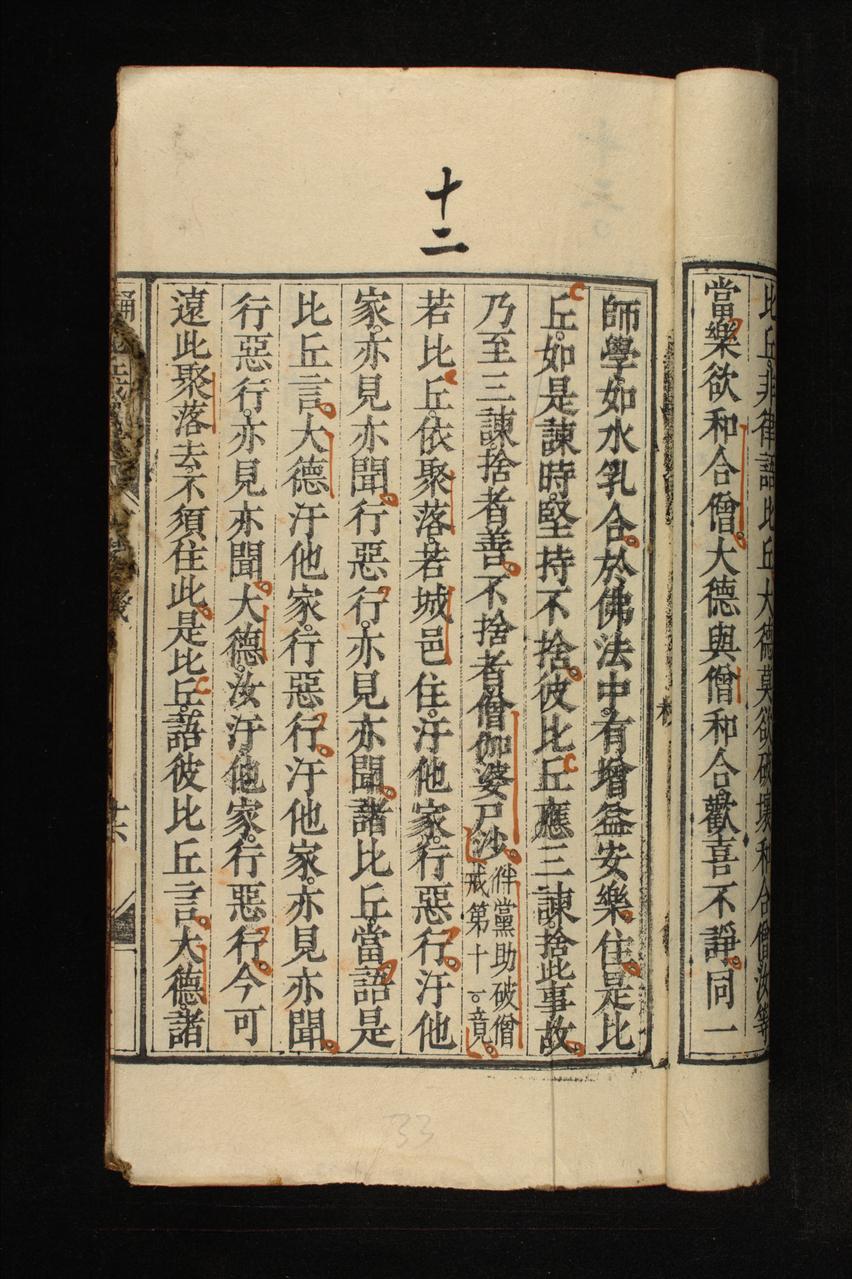 比丘非律語比丘大德莫欲破壞和合僧汝等
當樂欲和合僧大德與僧和合歡喜不諍同一
師學如水乳合於佛法中有增益安樂住是比
丘如是諫時堅持不捨彼比丘應三諫捨此事故
乃至三諫捨者善不捨者僧伽婆尸沙
伴黨助破僧
戒第十一。竟
十二
若比丘依聚落若城邑住汙他家行惡行汙他
家亦見亦聞行惡行亦見亦聞諸比丘當語是
比丘言大德汙他家行惡行汙他家亦見亦聞
行惡行亦見亦聞大德汝汙他家行惡行今可
遠此聚落去不須住此是比丘語彼比丘言大德諸
十六
33